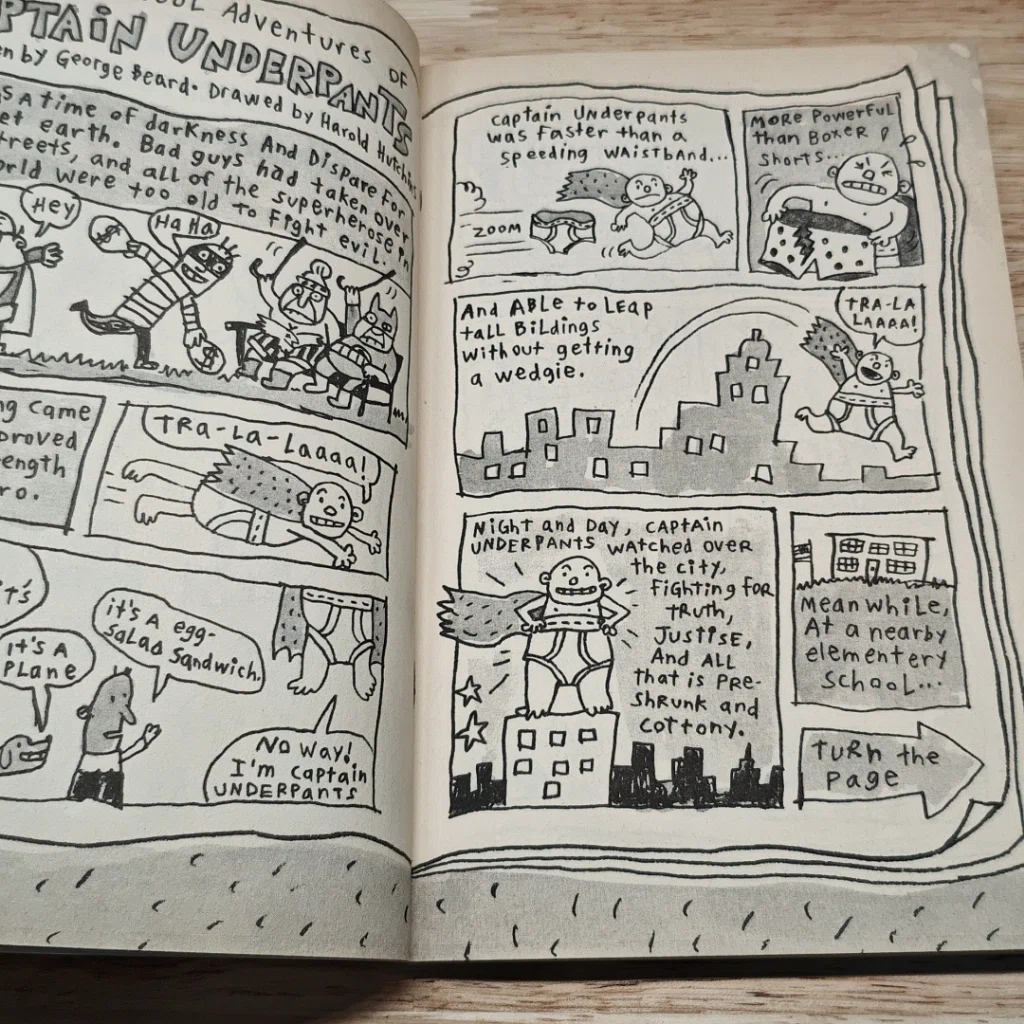 Adventures of
UNDERPANTS
by George Beard. Drawed by Harold
A time of darkness And Dispare for
earth. Bad guys had taken over
and all of the superherose in
were too old to fight evil.
Hey
Ha Ha
came
TRA-LA-Laaaa!
it's A
PLane
it's A egg-
Salad Sandwich.
No way!
I'm Captain
UNDERPANTS
Captain Underpants
was faster than a
speeding WAISTBAND...
ZOOM
More Powerful
than Boxer
Shorts...
And ABle to Leap
tall Bildings
without getting
a wedgie.
TRA-LA
LAAAA!
Night and Day, Captain
UNDERPANTS watched over
the city,
fighting for
truth,
Justise,
And All
that is Pre-
Shrunk and
cottony.
Meanwhile,
At a nearby
elementery
School...
TURN the
Page